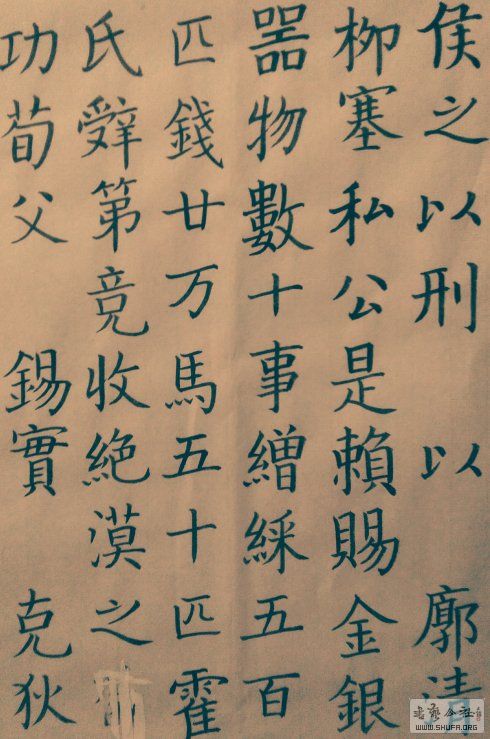 侯之以刑以廓清
柳塞私公是賴賜金銀
器物數十事繒綵五百
匹錢廿万馬五十匹霍
氏辤第竟收絕漠之
功荀父錫實克狄
WWW.SHUFA.ORG